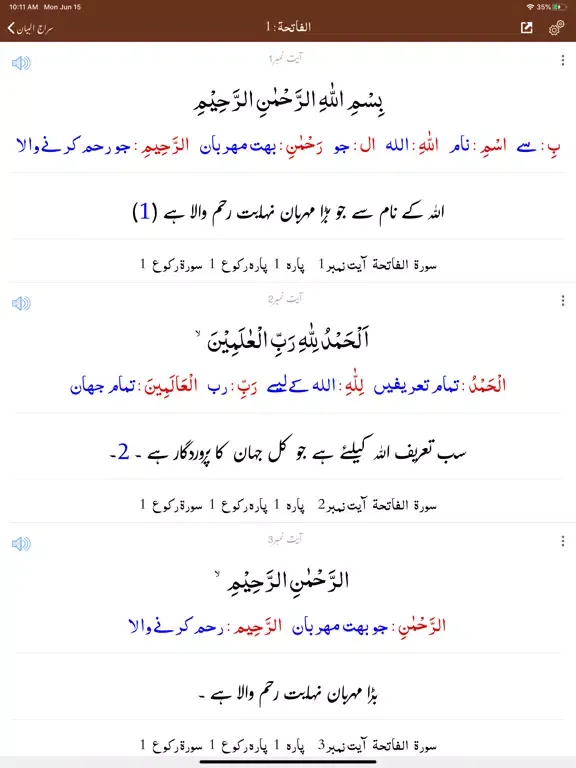 10:11 AM Mon Jun 15 35%
سراج البیان الفاتحة: 1
آیت نمبر1
بِسْمِ اللهِ الرَّحْمٰنِ الرَّحِيْمِ
بِ: سے اسْمِ: نام اللهِ: الله ال: جو رَحْمٰنِ: بهت مهربان الرَّحِيمِ: جو رحم کرنے والا
اللہ کے نام سے جو بڑا مہربان نہایت رحم والا ہے (1)
سورة الفاتحة آیت نمبر1 پارہ 1 پارہ رکوع 1 سورۃ رکوع 1
آیت نمبر2
اَلْحَمْدُ لِلّٰهِ رَبِّ الْعٰلَمِيْنَ ۙ
الْحَمْدُ: تمام تعریفیں لِلّٰهِ: الله کے لیے رَبِّ: رب الْعَالَمِينَ: تمام جهان
سب تعریف اللہ کیلئے ہے جو کل جہان کا پروردگار ہے ۔ 2۔
سورة الفاتحة آیت نمبر2 پارہ 1 پارہ رکوع 1 سورۃ رکوع 1
آیت نمبر3
الرَّحْمٰنِ الرَّحِيْمِ ۙ
الرَّحْمٰنِ: جو بهت مهربان الرَّحِيمِ: رحم کرنے والا
بڑا مہربان نہایت رحم والا ہے ۔
سورة الفاتحة آیت نمبر3 پارہ 1 پارہ رکوع 1 سورۃ رکوع 1